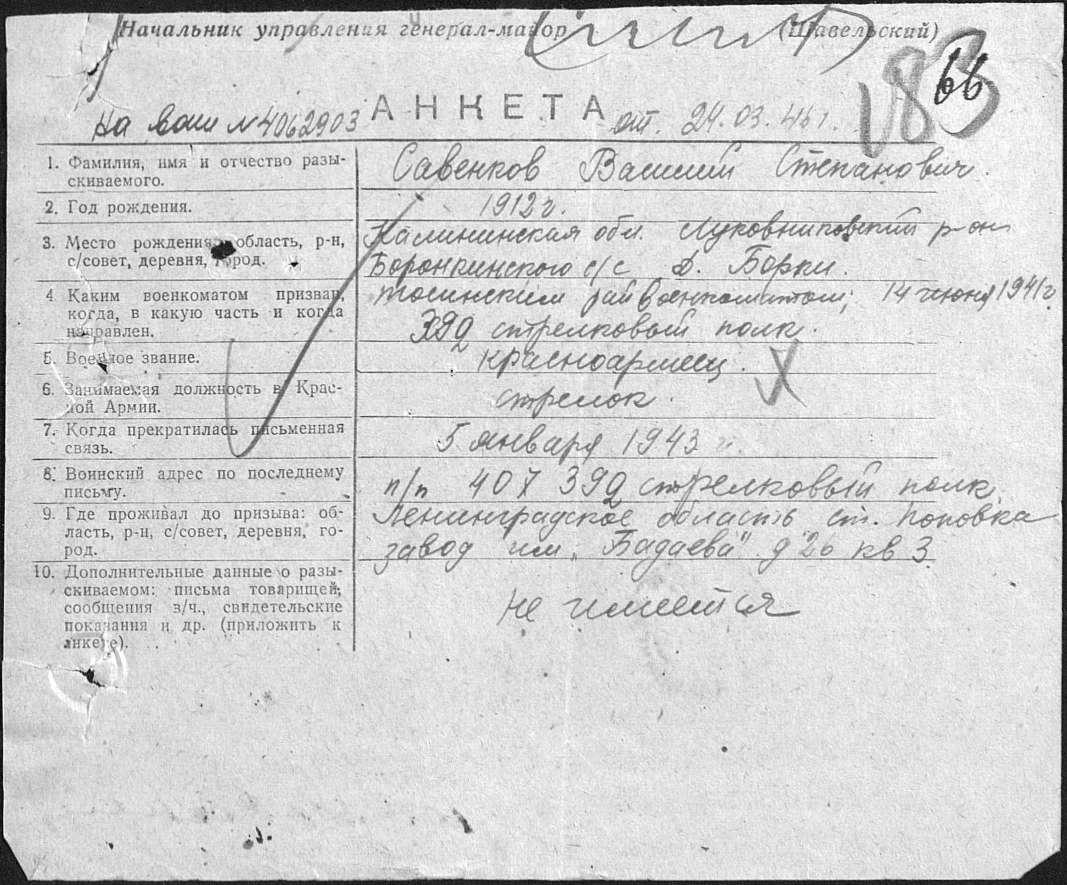 Начальник управления генерал-майор (Шавельский)
66
АНКЕТА
На ваш №4062903 от. 24.03.46 г.
1. Фамилия, имя и отчество разы-
скиваемого.
Савенков Василий Степанович.
2. Год рождения.
1912 г.
3. Место рождения: область, р-н,
с/совет, деревня, город.
Калининская обл. Луковниковский р-он
Боронкинского с/с д. Борки.
4. Каким военкоматом призван,
когда, в какую часть и когда
направлен.
тосинским райвоенкоматом; 14 июня 1941 г
392 стрелковый полк.
5. Военное звание.
красноармеец.
6. Занимаемая должность в Крас-
ной Армии.
стрелок.
7. Когда прекратилась письменная
связь.
5 января 1943 г.
8. Воинский адрес по последнему
письму.
п/п 407 392 стрелковый полк.
9. Где проживал до призыва: об-
ласть, р-н, с/совет, деревня, го-
род.
Ленинградское область ст. Поповка
завод им. „Бадаева" д 26 кв 3.
10. Дополнительные данные о разы-
скиваемом: письма товарищей,
сообщения в/ч., свидетельские
показания и др. (приложить к
анкете).
не имеется